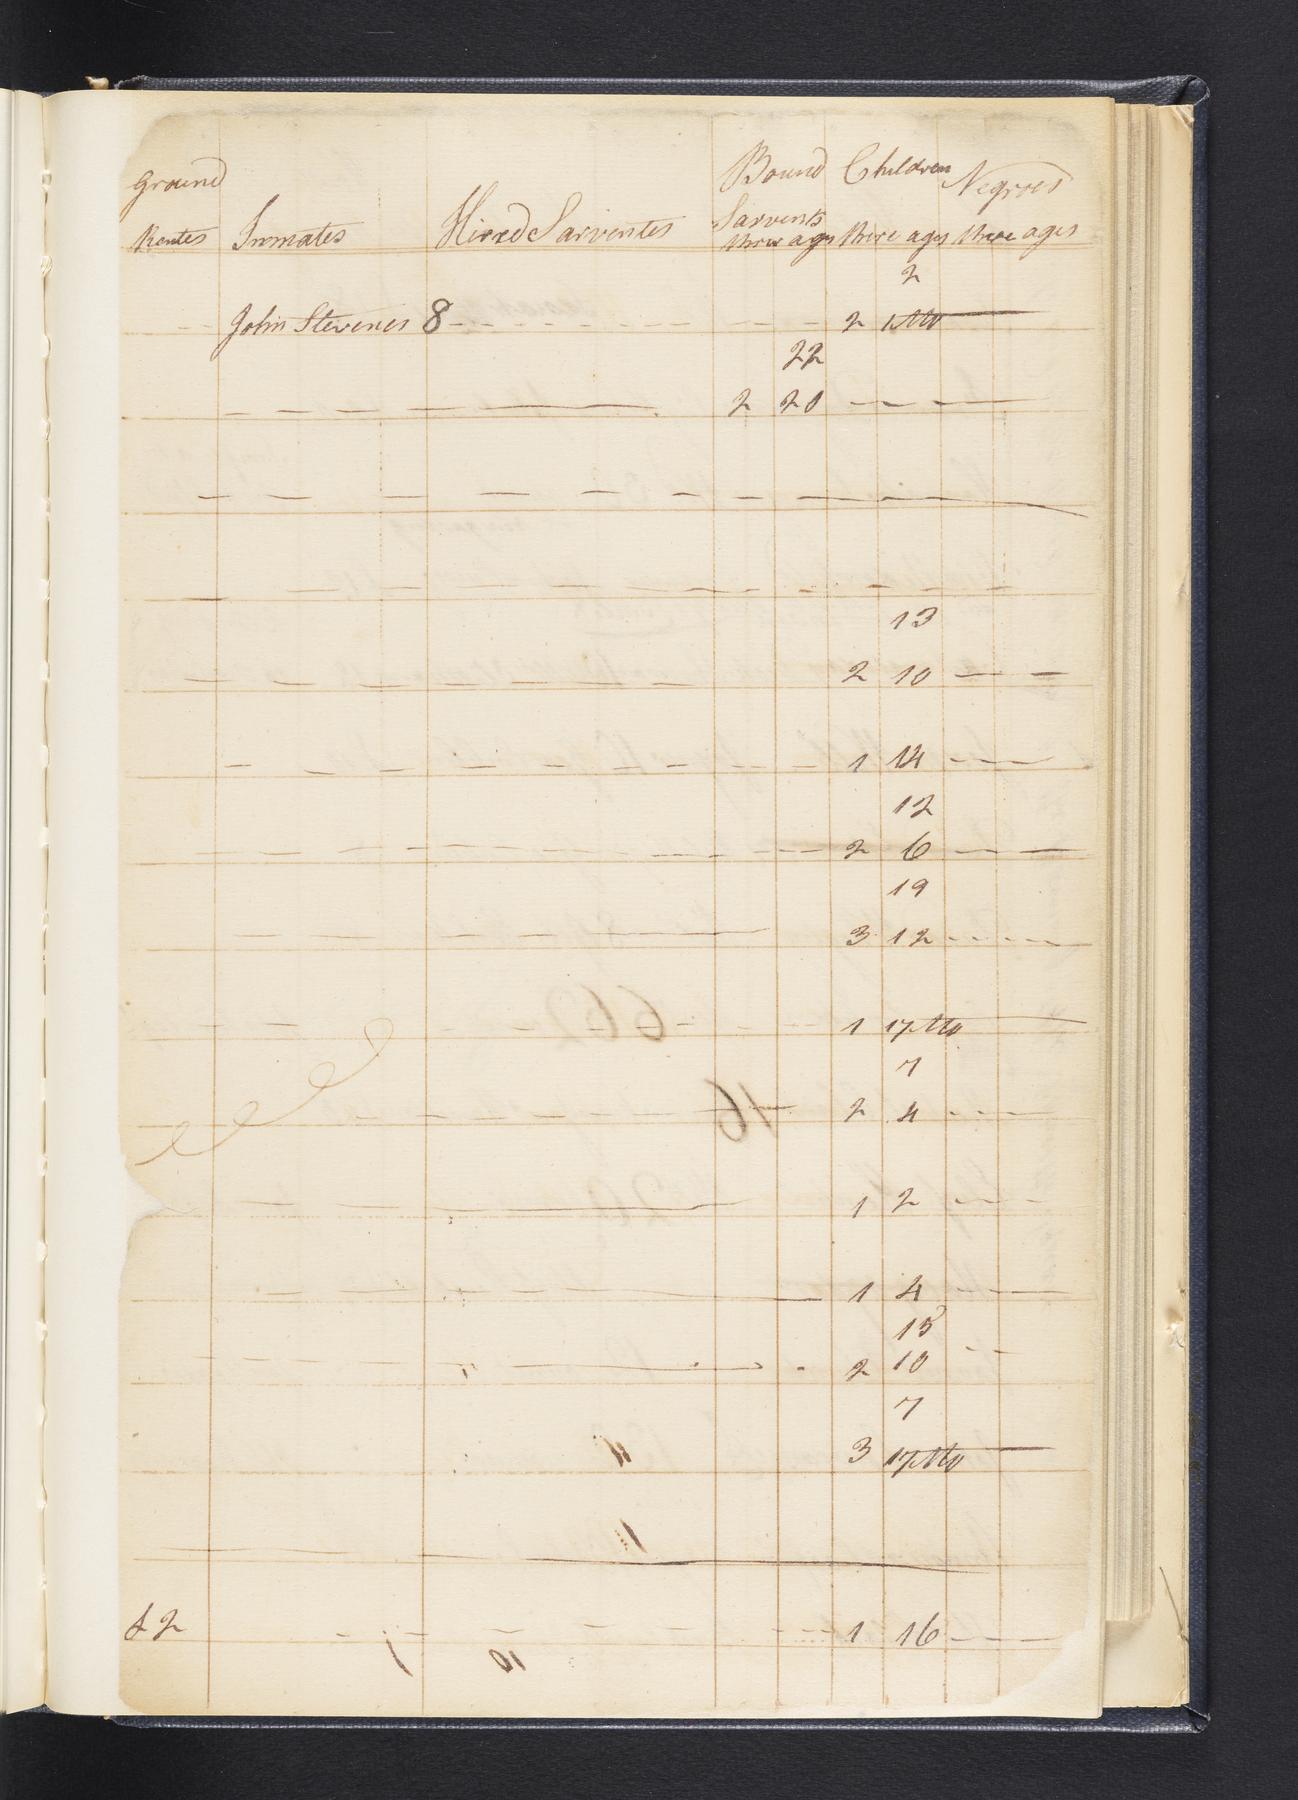 Ground Bound Children Negroes
Rentes Inmates Hired Sarventes Sarvents
there ages there ages there ages
2
John Stevenes 8 2 1 Mo
22
2 20
13
2 10
1 14
12
2 6
19
3 12
1 17 Mo
7
2 4
1 2
1 4
15
2 10
7
3 17 Mo
£2 1 16